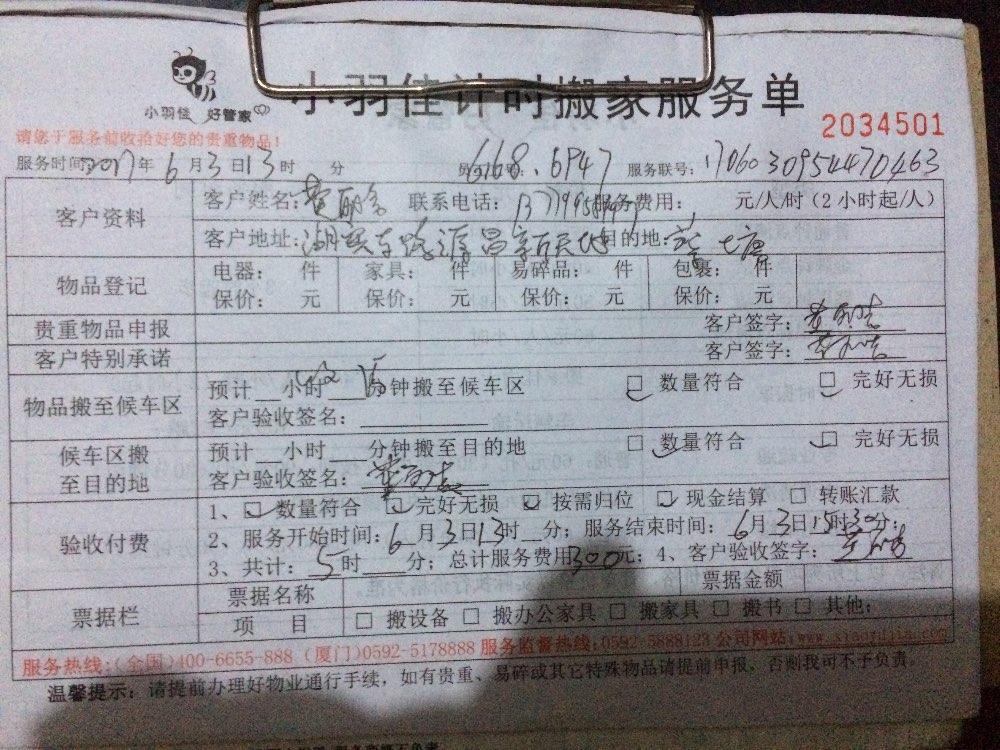 小羽佳 好管家
小羽佳计时搬家服务单
2034501
请您于服务前收拾好您的贵重物品!
服务时间: 2017年6月3日13时 分 668.6947 服务联号: 170603095447 0463
客户资料
客户姓名: 联系电话: 服务费用: 元/人/时(2小时起/人)
客户地址: 目的地:
物品登记
电器: 件 家具: 件 易碎品: 件 包裹: 件
保价: 元 保价: 元 保价: 元 保价: 元
贵重物品申报 客户签字:
客户特别承诺 客户签字:
物品搬至候车区
预计__小时 分钟搬至候车区 □ 数量符合 □ 完好无损
客户验收签名:
候车区搬至目的地
预计__小时 分钟搬至目的地 □ 数量符合 □ 完好无损
客户验收签名:
验收付费
1、□ 数量符合 □ 完好无损 □ 按需归位 □ 现金结算 □ 转账汇款
2、服务开始时间: 6月3日13时__分; 服务结束时间: 6月3日15时30分;
3、共计: 5时 分; 总计服务费用300元; 4、客户验收签字:
票据栏
票据名称 票据金额
项 目 □ 搬设备 □ 搬办公家具 □ 搬家具 □ 搬书 □ 其他:
服务热线:(全国)400-6655-888 (厦门)0592-5178888 服务监督热线:0592-5888123 公司网站:
温馨提示: 请提前办理好物业通行手续, 如有贵重、易碎或其它特殊物品请提前申报, 否则我司不予负责